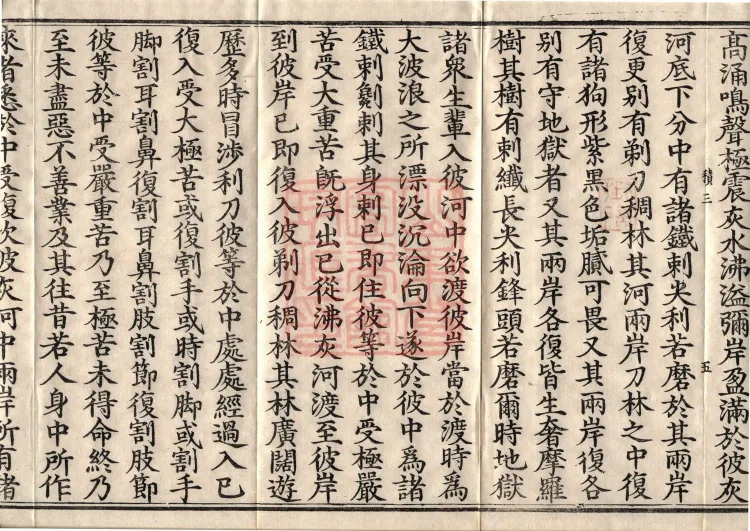 高涌鳴聲極震灰水沸溢彌岸盈滿於彼灰
積三 五
河底下分中有諸鐵刺尖利若磨於其兩岸
復更別有剃刀稠林其河兩岸刀林之中復
有諸狗形紫黑色垢膩可畏又其兩岸復各
別有守地獄者又其兩岸各復皆生奢摩羅
樹其樹有刺纖長尖利鋒頭若磨爾時地獄
諸衆生輩入彼河中欲渡彼岸當於渡時爲
大波浪之所漂没沉淪向下遂於彼中爲諸
鐵刺劖刺其身刺已即住彼等於中受極嚴
苦受大重苦旣浮出已從沸灰河渡至彼岸
到彼岸已即復入彼剃刀稠林其林廣闊遊
歷多時冒涉利刀彼等於中處處經過入已
復入受大極苦或復割手或時割脚或割手
脚割耳割鼻復割耳鼻割肢割節復割肢節
彼等於中受嚴重苦乃至極苦未得命終乃
至未盡惡不善業及其往昔若人身中所作
來者悉於中受復次彼灰河中兩岸所有諸